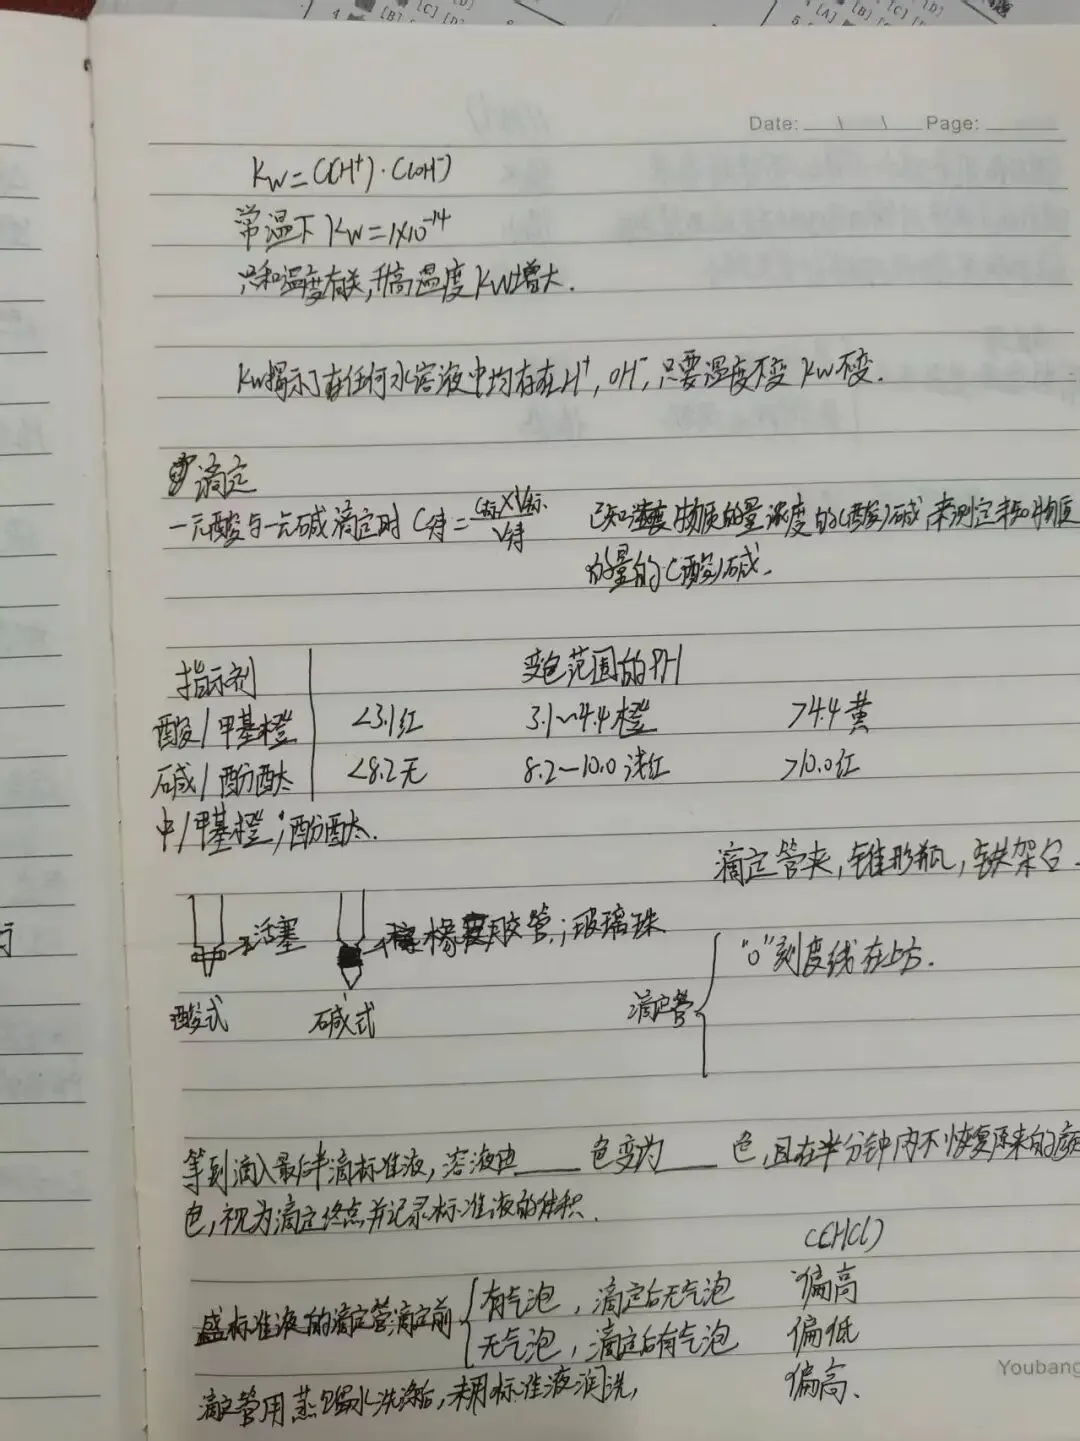 Date: \ \ Page:
Kw=C(H⁺)·C(OH⁻)
常温下 Kw=1×10⁻¹⁴
只和温度有关,升高温度Kw增大.
Kw揭示了在任何水溶液中均存在H⁺, OH⁻, 只要温度不变 Kw不变.
滴定
一元酸与一元碱滴定时 C待=C标×V标/V待 已知物质的量浓度的(酸)碱来测定未知物质
的量的(酸)碱.
指示剂 变色范围的PH
酸/甲基橙 <3.1红 3.1~4.4橙 >4.4黄
碱/酚酞 <8.2无 8.2~10.0浅红 >10.0红
中/甲基橙;酚酞.
滴定管夹,锥形瓶,铁架台.
活塞 橡胶管;玻璃珠
"0"刻度线在上方.
酸式 碱式 滴定管
等到滴入最后半滴标准液,溶液由____色变为____色,且在半分钟内不恢复原来的颜
色,视为滴定终点并记录标准液的体积.
C(HCl)
盛标准液的滴定管滴定前 有气泡,滴定后无气泡 偏高
无气泡,滴定后有气泡 偏低
滴定管用蒸馏水洗涤后,未用标准液润洗, 偏高.
Youbang